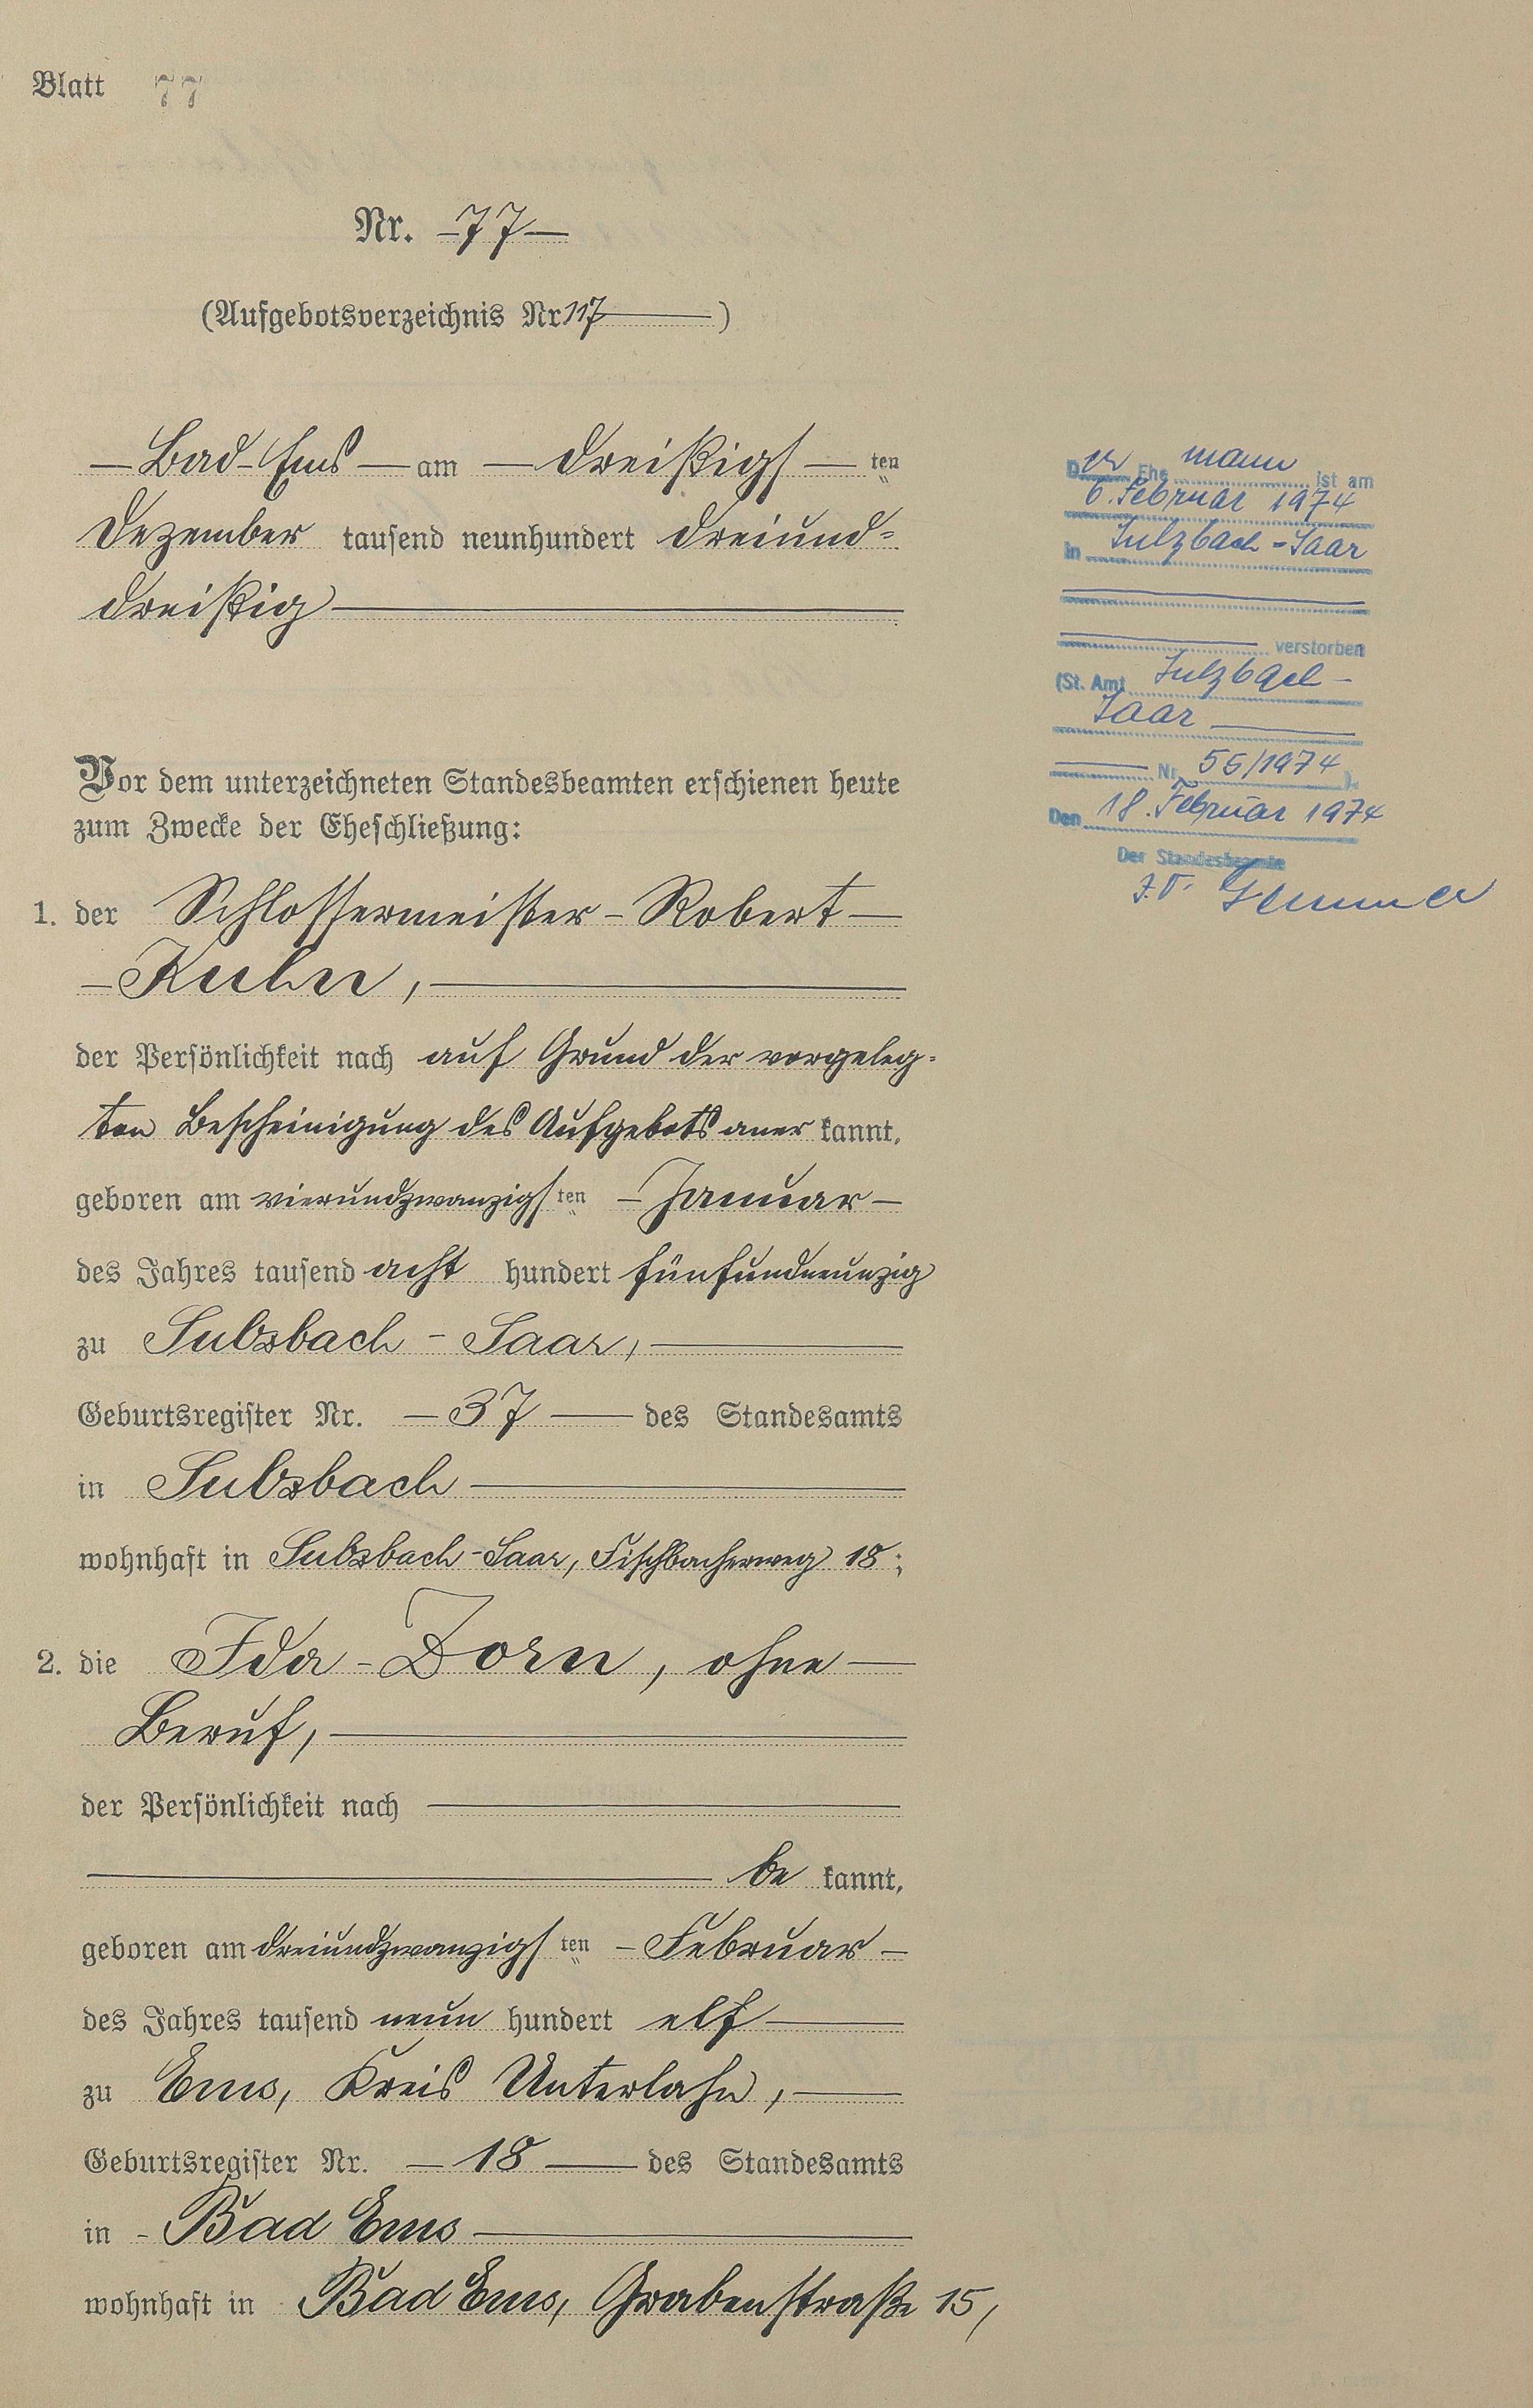 Blatt 77
Nr. 77
(Aufgebotsverzeichnis Nr 117)
Bad-Ems am dreißigs ten
Dezember tausend neunhundert dreiund-
dreißig
Vor dem unterzeichneten Standesbeamten erschienen heute
zum Zwecke der Eheschließung:
1. der Schlossermeister - Robert
Kuhn,
der Persönlichkeit nach auf Grund der vorgeleg-
ten Bescheinigung des Aufgebots aner kannt,
geboren am vierundzwanzigs ten Januar
des Jahres tausend acht hundert fünfundneunzig
zu Sulzbach - Saar,
Geburtsregister Nr. 37 des Standesamts
in Sulzbach
wohnhaft in Sulzbach-Saar, Fischbacherweg 18;
2. die Ida - Dorn, ohne
Beruf,
der Persönlichkeit nach
be kannt,
geboren am dreiundzwanzigs ten Februar
des Jahres tausend neun hundert elf
zu Ems, Kreis Unterlahn,
Geburtsregister Nr. 18 des Standesamts
in Bad Ems
wohnhaft in Bad Ems, Grabenstraße 15,
Der Ehe mann ist am
6. Februar 1974
in Sulzbach-Saar
verstorben
(St. Amt Sulzbach-
Saar
Nr. 56/1974).
Den 18. Februar 1974
Der Standesbeamte
I.V.